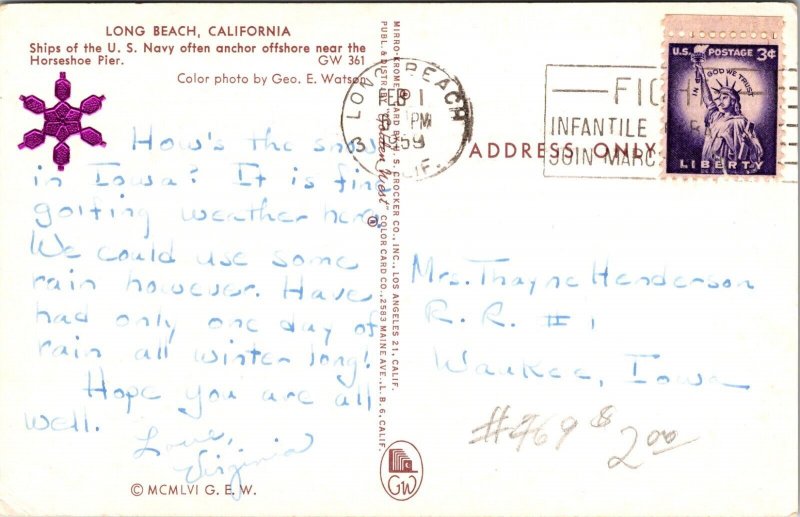 LONG BEACH, CALIFORNIA
Ships of the U. S. Navy often anchor offshore near the
Horseshoe Pier. GW 361
Color photo by Geo. E. Watson
How's the snow
in Iowa? It is fine
golfing weather here.
We could use some
rain however. Have
had only one day of
rain all winter long!
Hope you are all
well. Love,
Virginia
© MCMLVI G. E. W.
MIRRO-KROME CARD BY H. S. CROCKER CO., INC., LOS ANGELES 21, CALIF.
PUBL. & DISTRIB. BY "Golden West" COLOR CARD CO., 2583 MAINE AVE., L. B. 6, CALIF.
GW
LONG BEACH
FEB 1
PM
1959
CALIF.
FIGHT
INFANTILE
JOIN MARCH
U.S. POSTAGE 3¢
IN GOD WE TRUST
LIBERTY
ADDRESS ONLY
Mrs. Thayne Henderson
R. R. # 1
Waukee, Iowa
#469 $
2.00